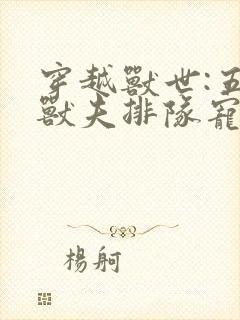 穿越獸世:五
獸夫排隊寵
楊舸